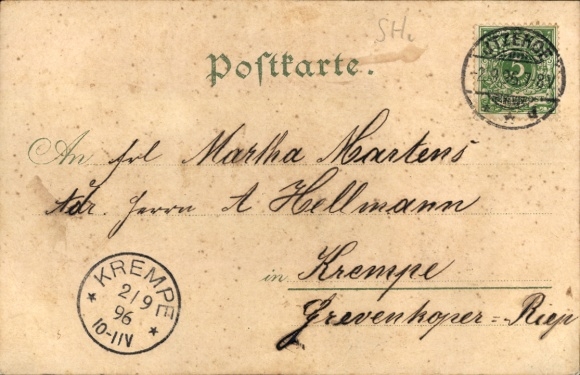 SH.
Postkarte.
ITZEHOE
2.9.96 7-8V
* d
5
An Frl Martha Martens
Adr. Herrn A Hellmann
in Krempe
Grevenkoper=Riep
* KREMPE *
2/9
96
10-11V